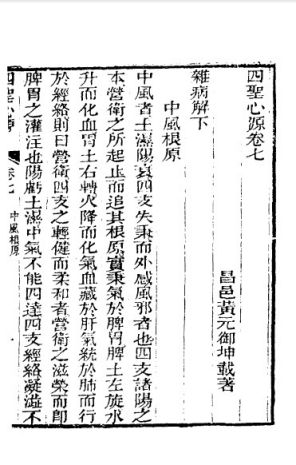 四聖心源卷七
昌邑黃元御坤載著
雜病解下
中風根原
中風者土濕陽衰四支失秉而外感風邪者也四支諸陽之
本營衛之所起止而追其根原實秉氣於脾胃脾土左旋水
升而化血胃土右轉火降而化氣血藏於肝氣統於肺而行
於經絡則曰營衛四支之輕健而柔和者營衛之滋榮而即
脾胃之灌注也陽虧土濕中氣不能四達四支經絡凝澁不
四聖心源
卷七
中風根原